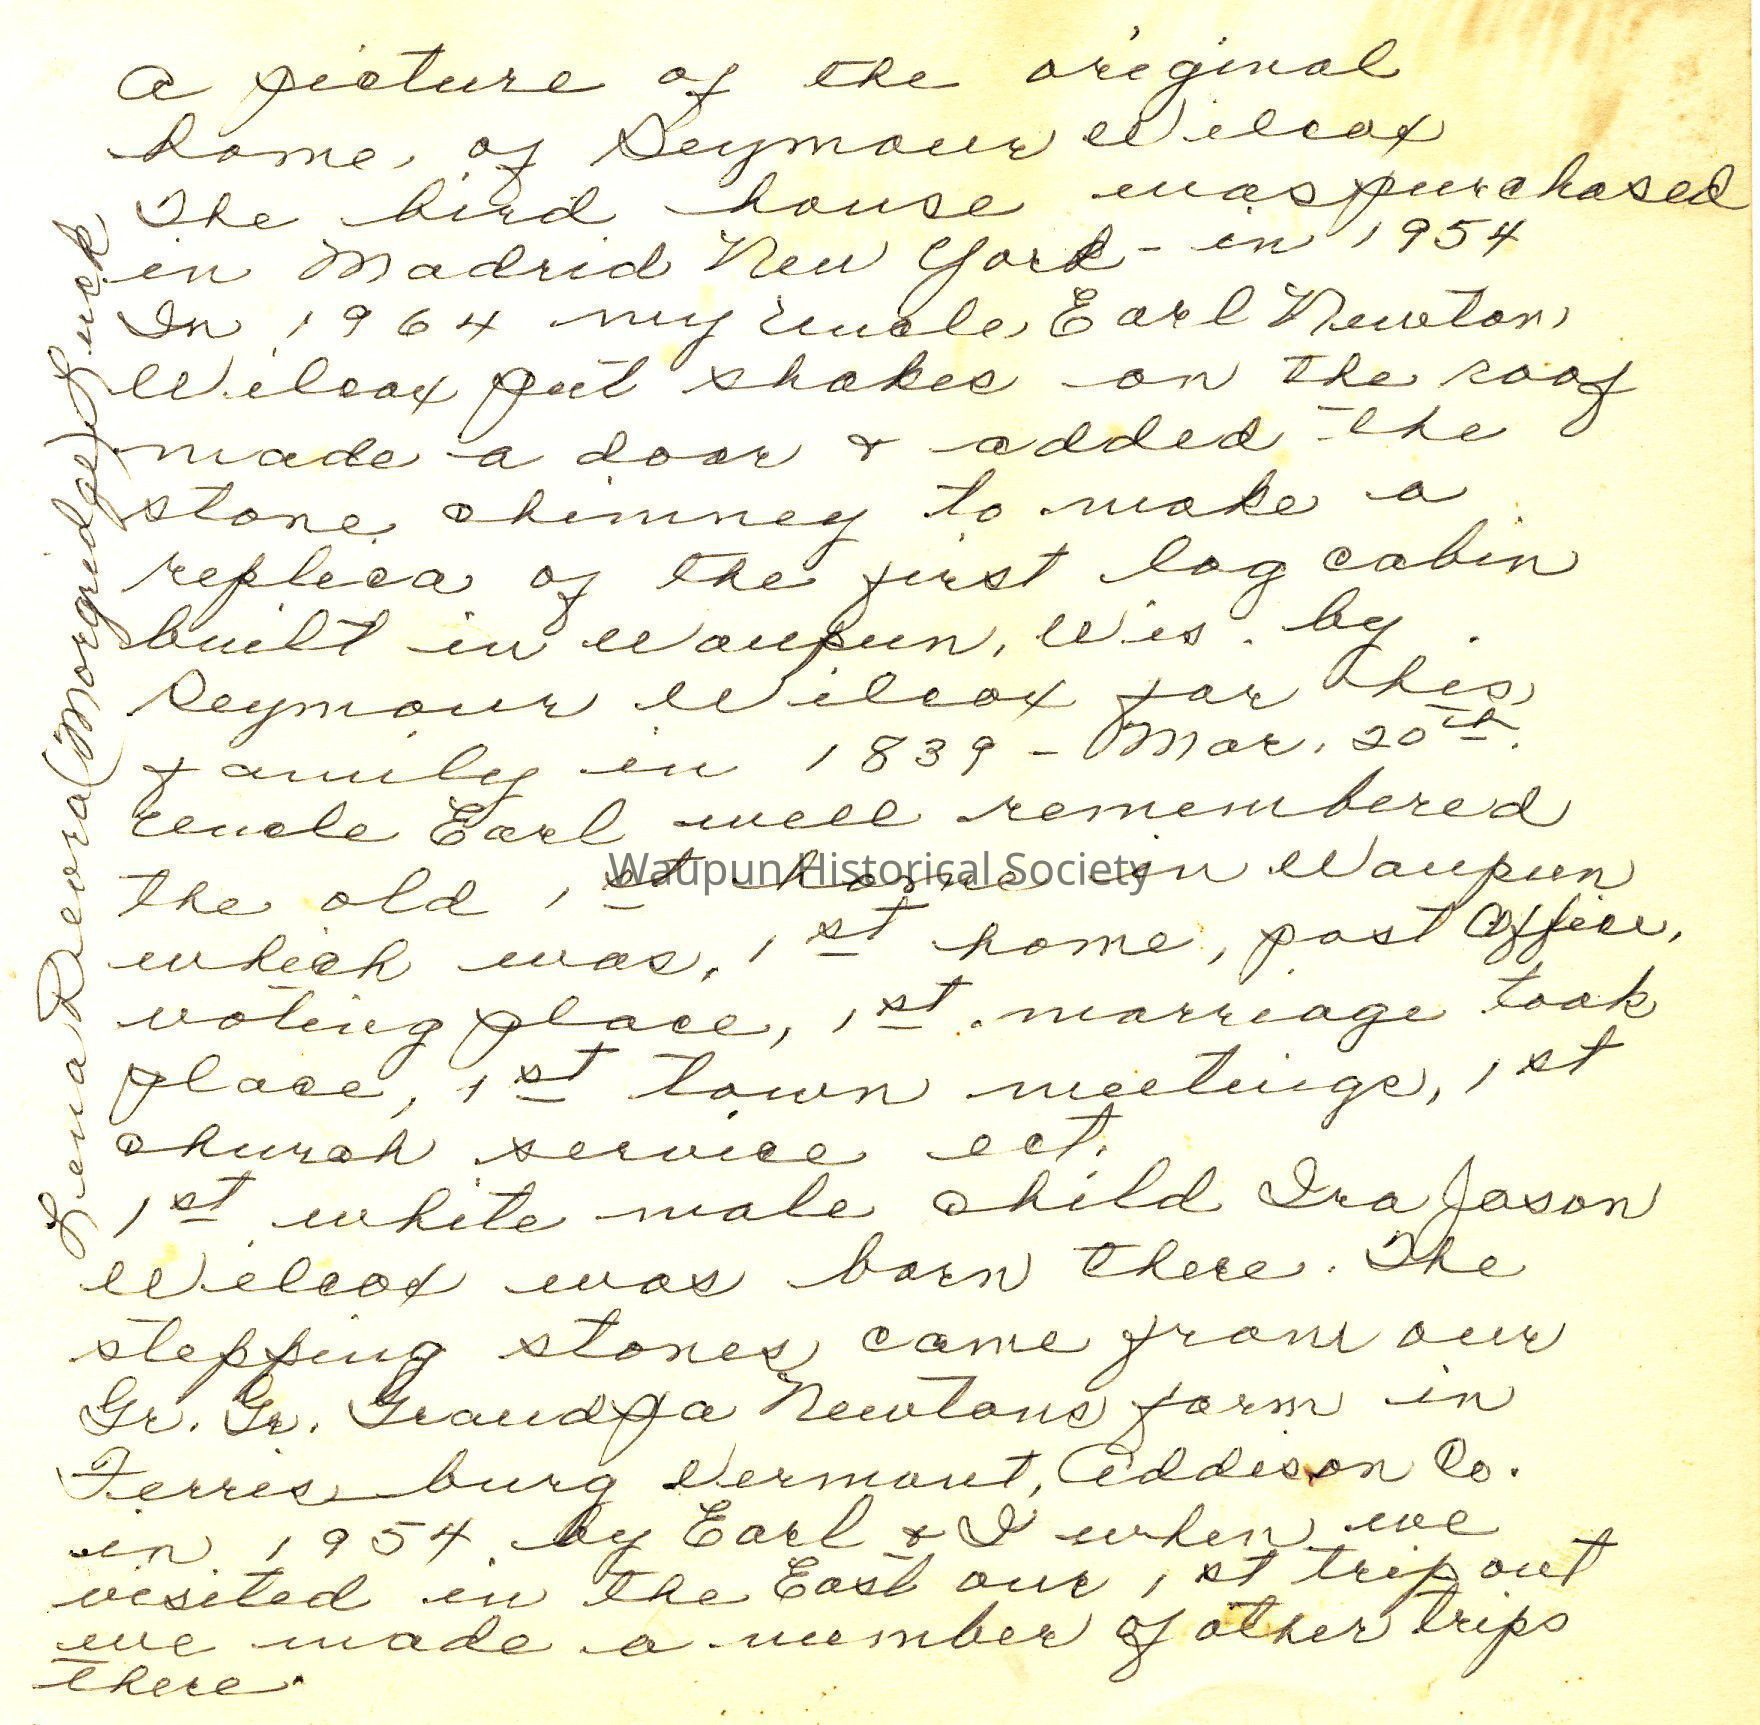 A picture of the original
home, of Seymour Wilcox
The bird house was purchased
in Madrid New York - in 1954
In 1964 my uncle, Earl Newton,
Wilcox put shakes on the roof
made a door & added the
stone chimney to make a
replica of the first log cabin
built in Waupun, Wis. by
Seymour Wilcox for his,
family in 1839 - Mar. 20th.
uncle Earl well remembered
the old 1st home in Waupun
which was, 1st home, post Office,
voting place, 1st. marriage took
place, 1st town meetings, 1st
church service ect.
1st white male child Ira Jason
Wilcox was born there. The
stepping stones came from our
Gr. Gr. Grandpa Newtons farm in
Ferrisburg Vermont, Addison Co.
in 1954 by Earl & I when we
visited in the East our 1st trip out
we made a number of other trips
there.
Lena Revora (Morgridge) Luck
Waupun Historical Society